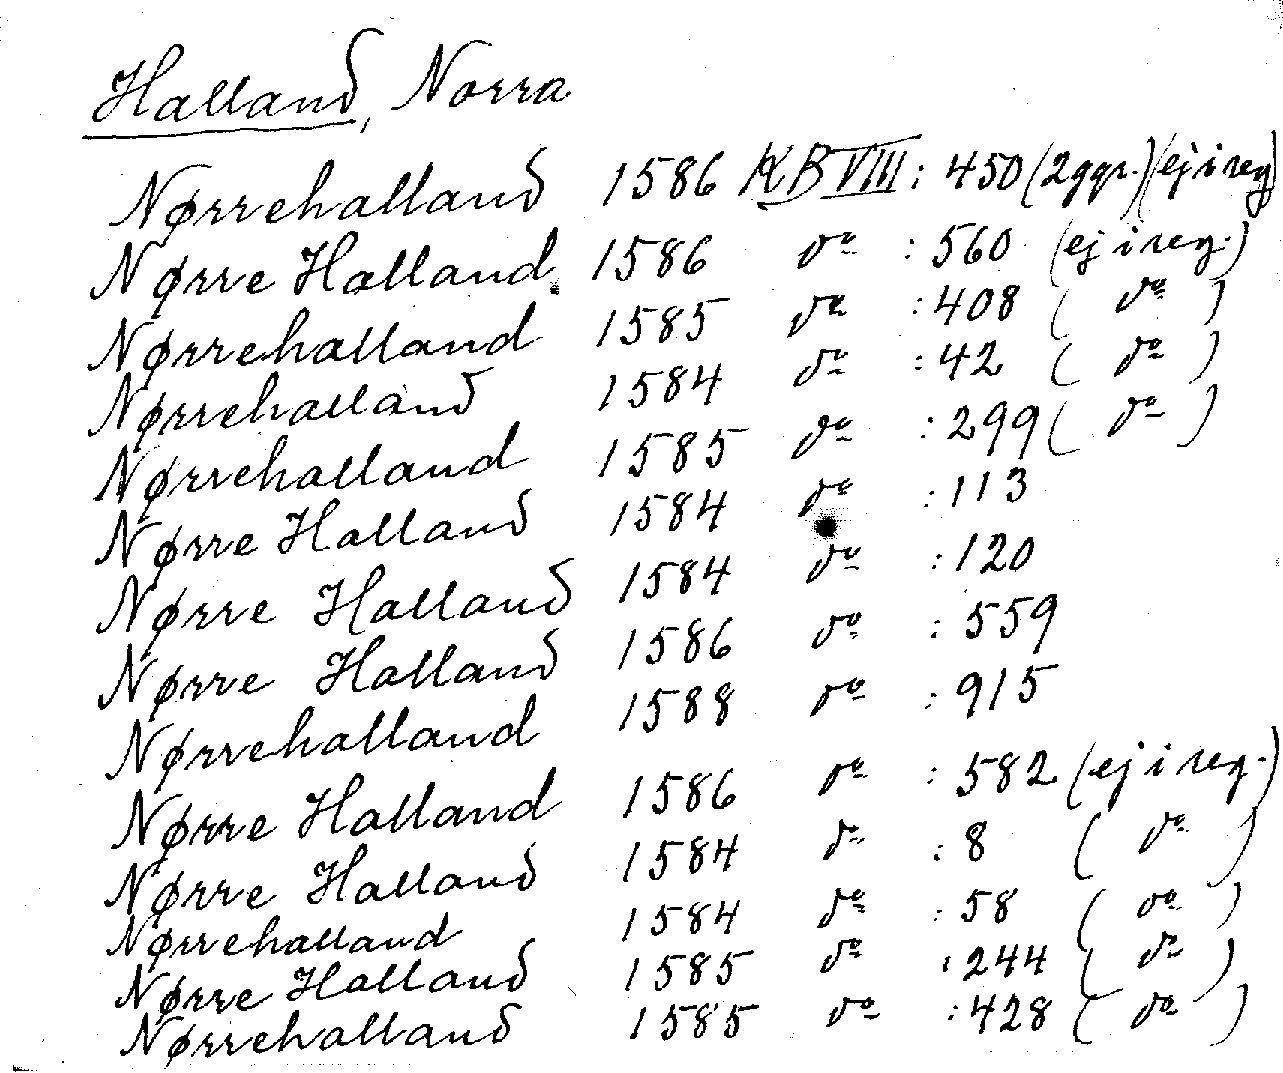 Halland, Norra
Nørrehalland 1586 KB VIII: 450 (2ggr.) (ej i reg
Nørre Halland 1586 dº :560 (ej i reg.)
Nørrehalland 1585 dº :408 ( dº )
Nørrehalland 1584 dº :42 ( dº )
Nørrehalland 1585 dº :299 ( dº )
Nørre Halland 1584 dº :113
Nørre Halland 1584 dº :120
Nørre Halland 1586 dº :559
Nørrehalland 1588 dº :915
Nørre Halland 1586 dº :582 (ej i reg.)
Nørre Halland 1584 dº :8 ( dº )
Nørrehalland 1584 dº :58 ( dº )
Nørre Halland 1585 dº :244 ( dº )
Nørrehalland 1585 dº :428 ( dº )